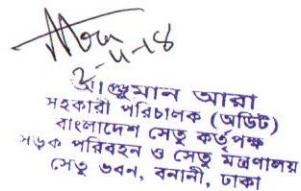 2-11-18
আঞ্জুমান আরা
সহকারী পরিচালক (অডিট)
বাংলাদেশ সেতু কর্তৃপক্ষ
সড়ক পরিবহন ও সেতু মন্ত্রণালয়
সেতু ভবন, বনানী, ঢাকা